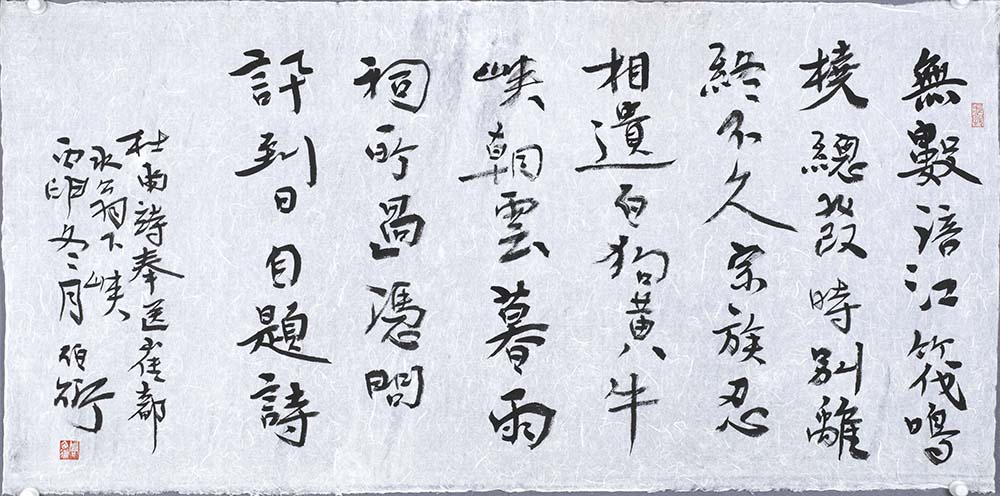 無數涪江筏鳴
橈總發時別離
終不久宗族忍
相遺白狗黃牛
峽朝雲暮雨
祠所過憑問
訊到日自題詩
杜甫詩奉送崔都
水翁下峽
丙申冬月